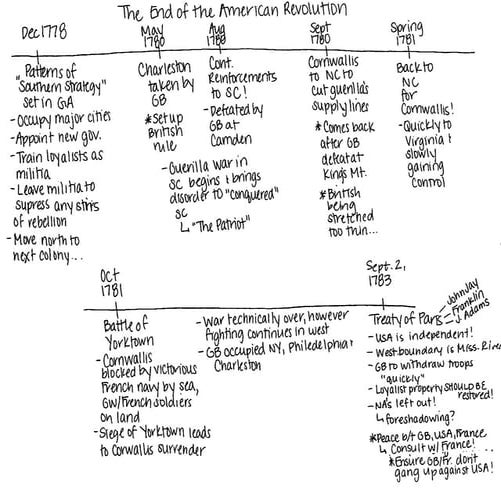 The End of the American Revolution
Dec 1778
"Patterns of
Southern Strategy"
set in GA
-Occupy major cities
-Appoint new gov.
-Train loyalists as
militia
-Leave militia to
supress any stirs
of rebellion
-Move north to
next colony...
May
1780
Charleston
taken by
GB
*Set up
British
rule
-Guerilla war in
SC begins + brings
disorder to "conquered"
SC
↳ "The Patriot"
Aug
1780
Cont.
Reinforcements
to SC!
-Defeated by
GB at
Camden
Sept
1780
Cornwallis
to NC to
cut guerilla's
supply lines
*Comes back
after GB
defeat at
King's Mt.
*British
being
stretched
too thin...
Spring
1781
Back to
NC
for
Cornwallis!
-Quickly to
Virginia +
slowly
gaining
control
Oct
1781
Battle of
Yorktown
-Cornwallis
blocked by victorious
French navy by sea,
GW/French soldiers
on land
-Siege of Yorktown leads
to Corwallis surrender
-War technically over, however
fighting continues in west
-GB occupied NY, Philedelphia +
Charleston
Sept. 2,
1783
Treaty of Paris
John Jay
Franklin
J. Adams
-USA is independent!
-West boundary is Miss. River
-GB to withdraw troops
"quickly"
-Loyalist property SHOULD BE
restored!
-NA's left out!
↳ foreshadowing?
*Peace b/t GB, USA, France
↳ Consult w/ France!
*Ensure GB/Fr. don't
gang up against USA!